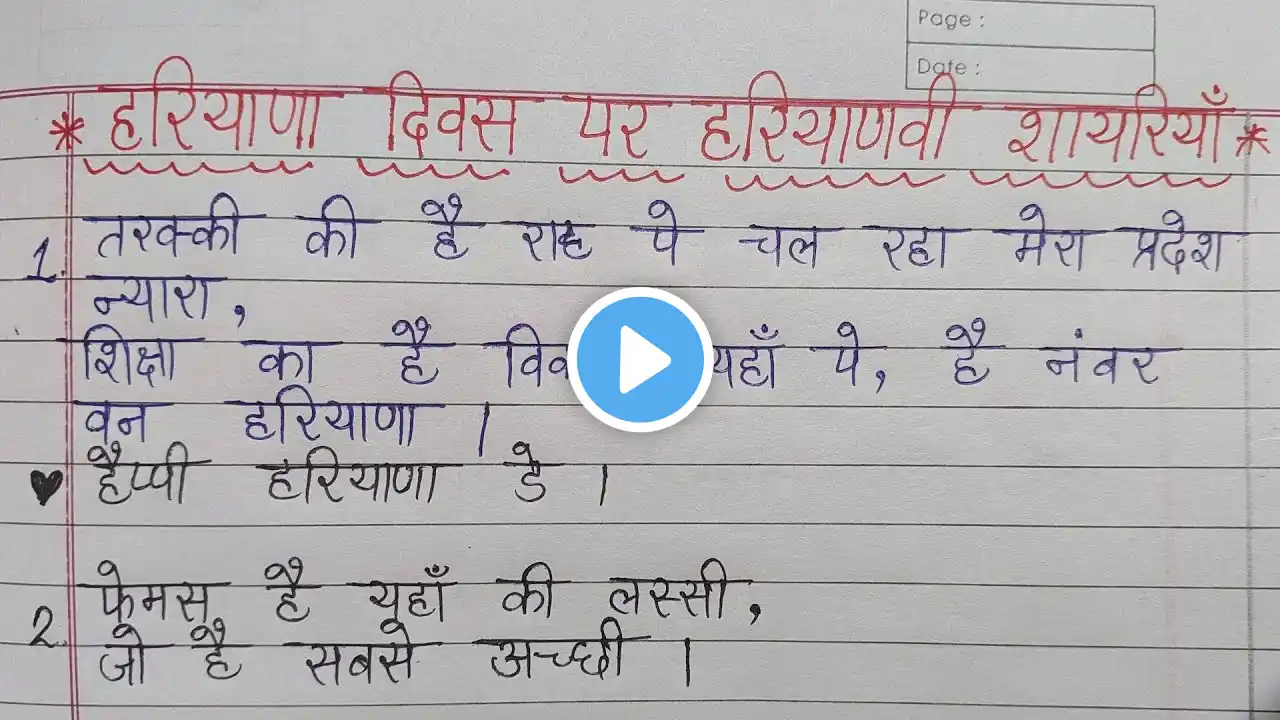 Page :
Date :
* हरियाणा दिवस पर हरियाणवी शायरियाँ *
1. तरक्की की है राह पे चल रहा मेरा प्रदेश
न्यारा,
शिक्षा का है यहाँ पे, है नंबर
वन हरियाणा ।
♥ हैप्पी हरियाणा डे ।
2. फेमस है यहाँ की लस्सी,
जो है सबसे अच्छी ।